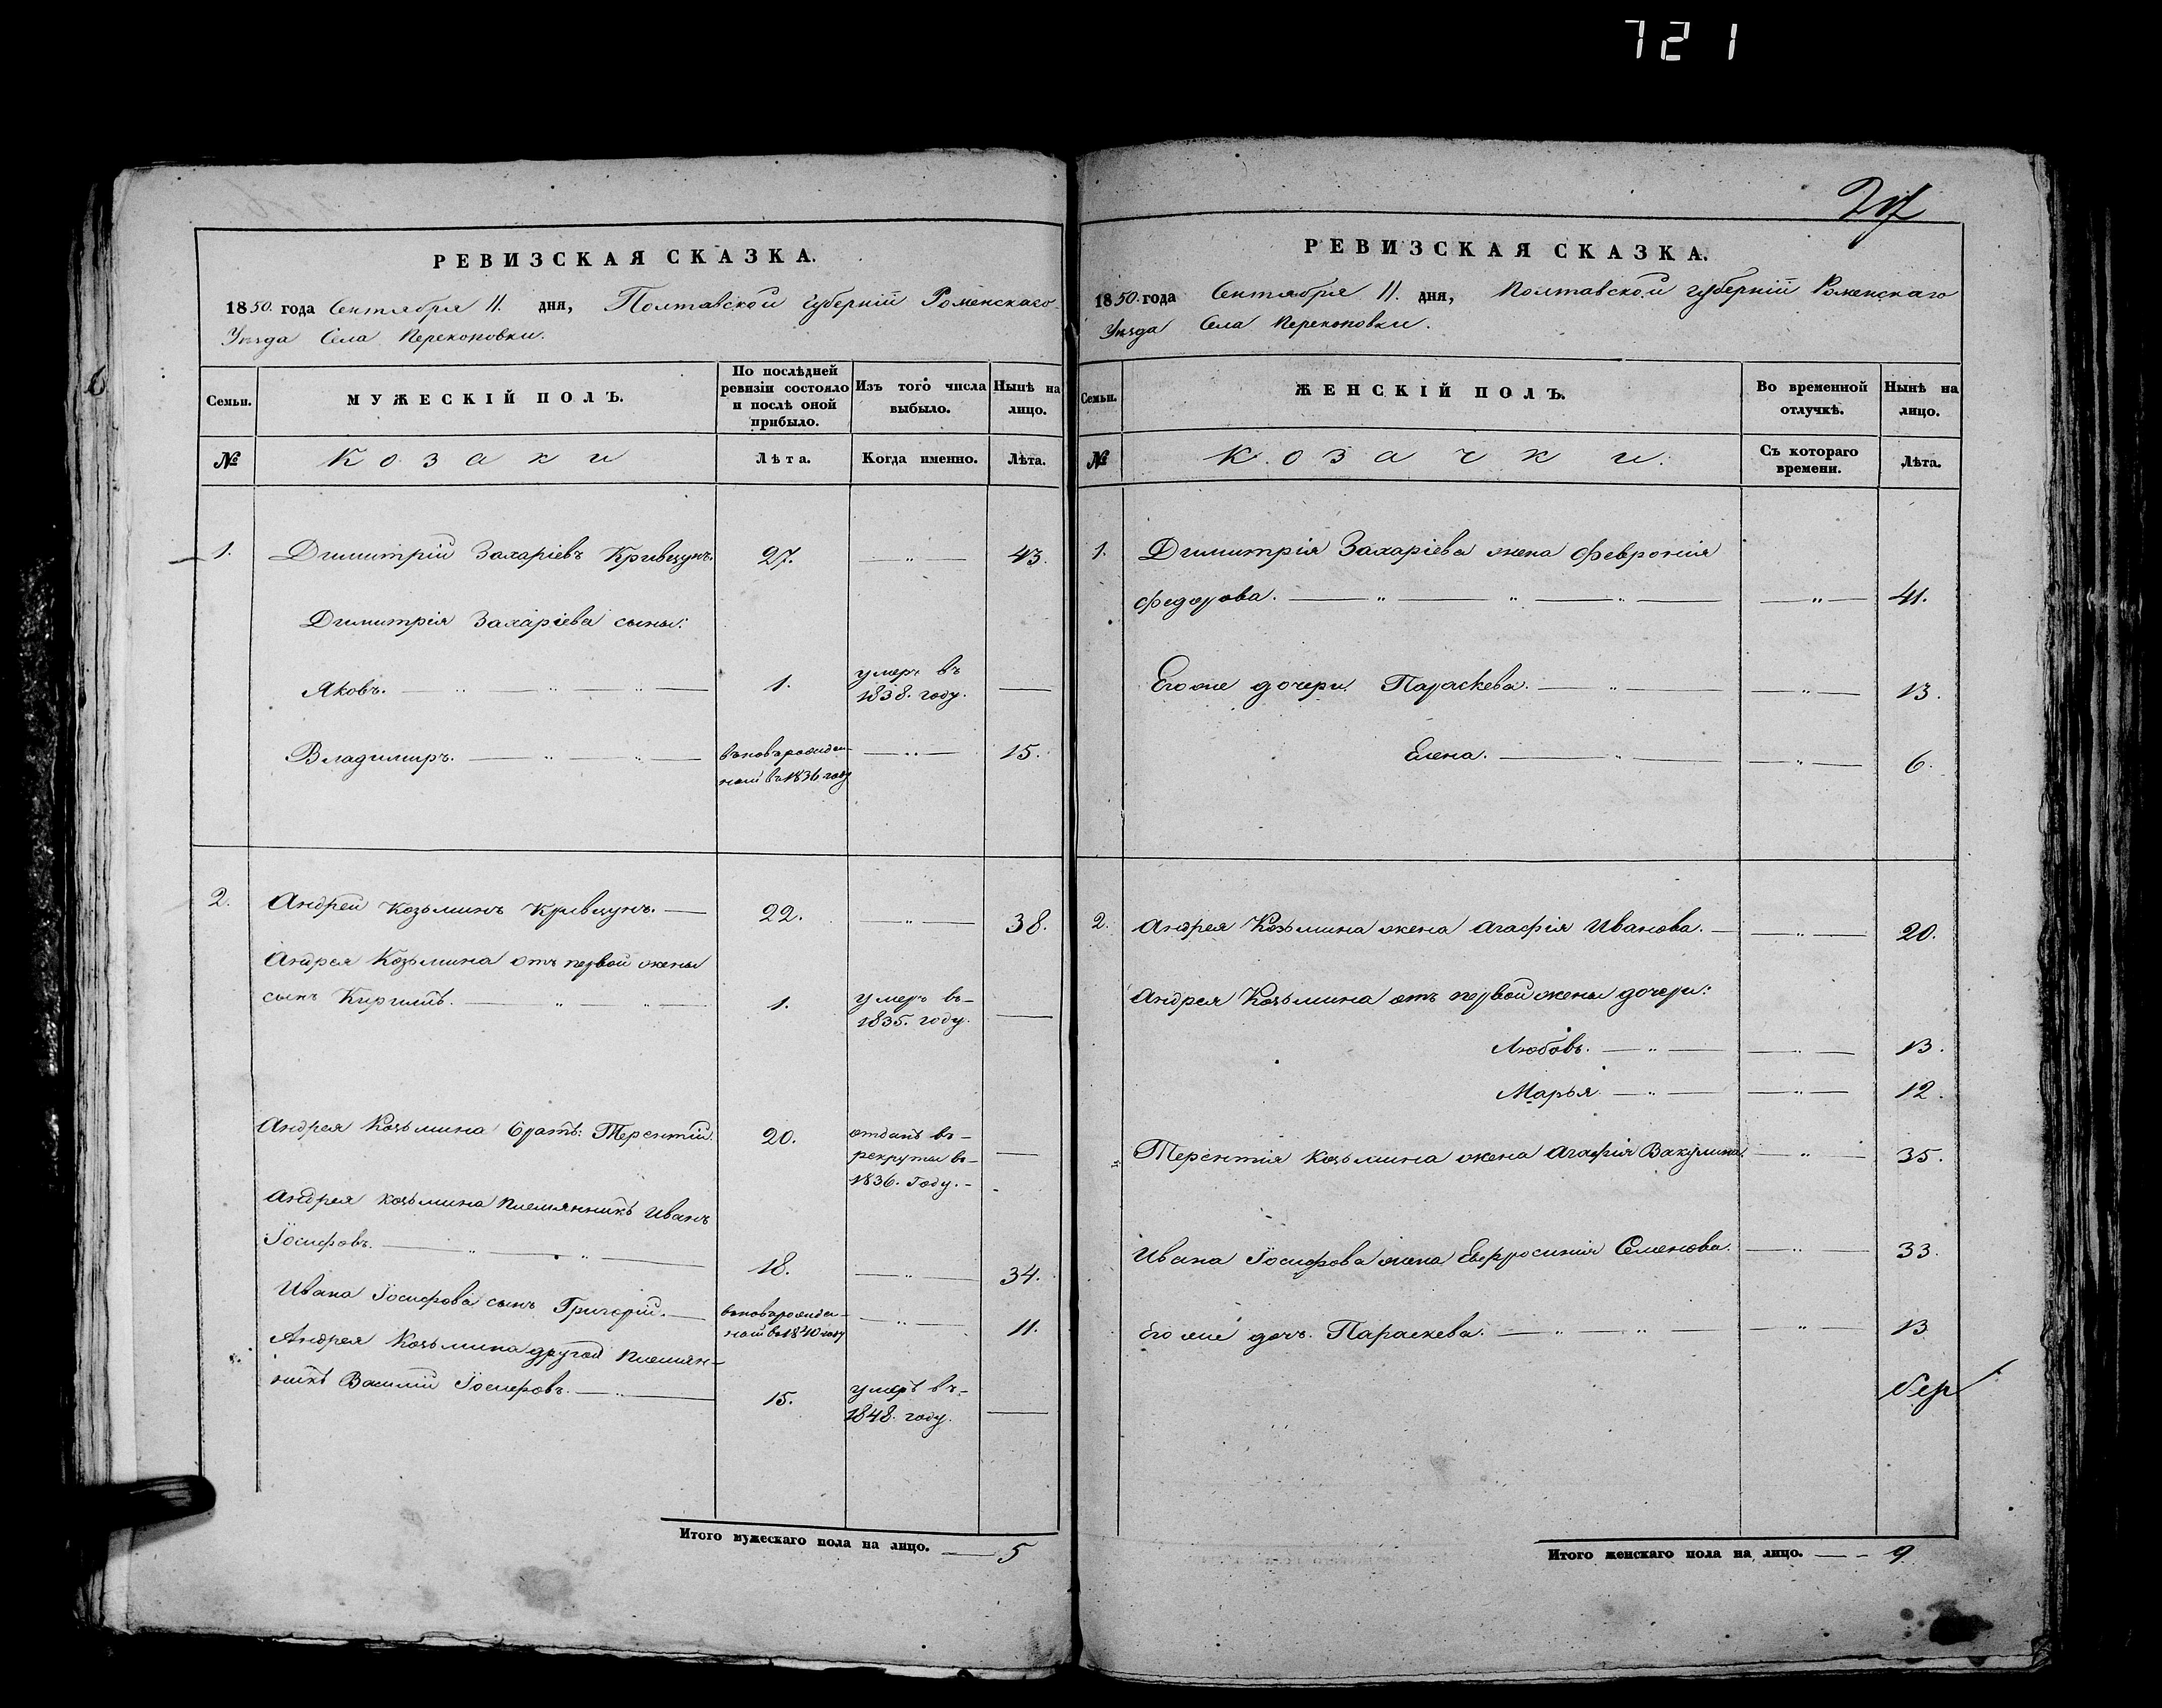 721
РЕВИЗСКАЯ СКАЗКА.
1850. года Сентября 11. дня, Полтавской губерніи Роменскаго
Уѣзда Села Перекоповки.
Семьи.
МУЖЕСКІЙ ПОЛЪ.
По послѣдней ревизіи состояло и послѣ оной прибыло.
Изъ того числа выбыло.
Нынѣ на лицо.
№
Козаки
Лѣта.
Когда именно.
Лѣта.
1. Димитрій Захаріевъ Кривецунъ. 27. 43.
Димитрія Захаріева сыны:
Яковъ. 1. умеръ въ 1838. году.
Владимиръ. въновьрожденной въ 1836 году 15.
2. Андрей Козьминъ Кривецунъ. 22. 38.
Андрея Козьмина отъ первой жены
сынъ Кирилъ. 1. умеръ въ 1835. году.
Андрея Козьмина братъ: Терентій. 20. отданъ въ рекруты въ 1836. году.
Андрея Козьмина племянникъ Иванъ
Іосифовъ. 18. 34.
Ивана Іосифова сынъ Григорій. въновьрожденной въ 1840 году 11.
Андрея Козьмина другой племян-
никъ Василій Іосифовъ. 15. умеръ въ 1848. году.
Итого мужескаго пола на лицо. 5
РЕВИЗСКАЯ СКАЗКА.
1850. года Сентября 11. дня, Полтавской губерніи Роменскаго
Уѣзда Села Перекоповки.
Семьи.
ЖЕНСКІЙ ПОЛЪ.
Во временной отлучкѣ.
Нынѣ на лицо.
№
Козачки.
Съ котораго времени.
Лѣта.
1. Димитрія Захаріева жена Февронія
Федорова. 41.
Егоже дочери Параскева. 13.
Елена. 6.
2. Андрея Козьмина жена Агафія Иванова. 20.
Андрея Козьмина отъ первой жены дочери:
Любовь. 13.
Марья. 12.
Терентія Козьмина жена Агафія Вакулина 35.
Ивана Іосифова жена Евфросинія Семенова. 33.
Его же дочь Параскева. 13
Итого женскаго пола на лицо. 9